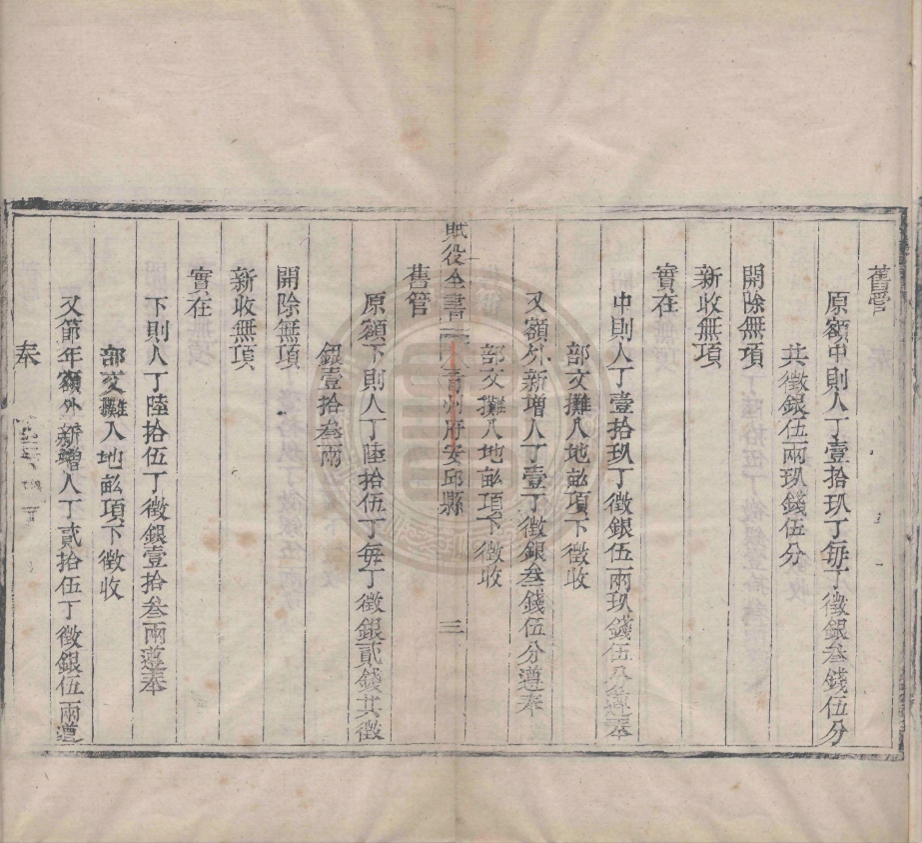 舊管
原額中則人丁壹拾玖丁每丁徵銀叁錢伍分
共徵銀伍兩玖錢伍分
開除無項
新收無項
實在
中則人丁壹拾玖丁徵銀伍兩玖錢伍分遵奉
部文攤入地畝項下徵收
又額外新增人丁壹丁徵銀叁錢伍分遵奉
部文攤入地畝項下徵收
賦役全書 青州府安邱縣 三
舊管
原額下則人丁陸拾伍丁每丁徵銀貳錢共徵
銀壹拾叁兩
開除無項
新收無項
實在
下則人丁陸拾伍丁徵銀壹拾叁兩遵奉
部文攤入地畝項下徵收
又節年額外新增人丁貳拾伍丁徵銀伍兩遵
奉